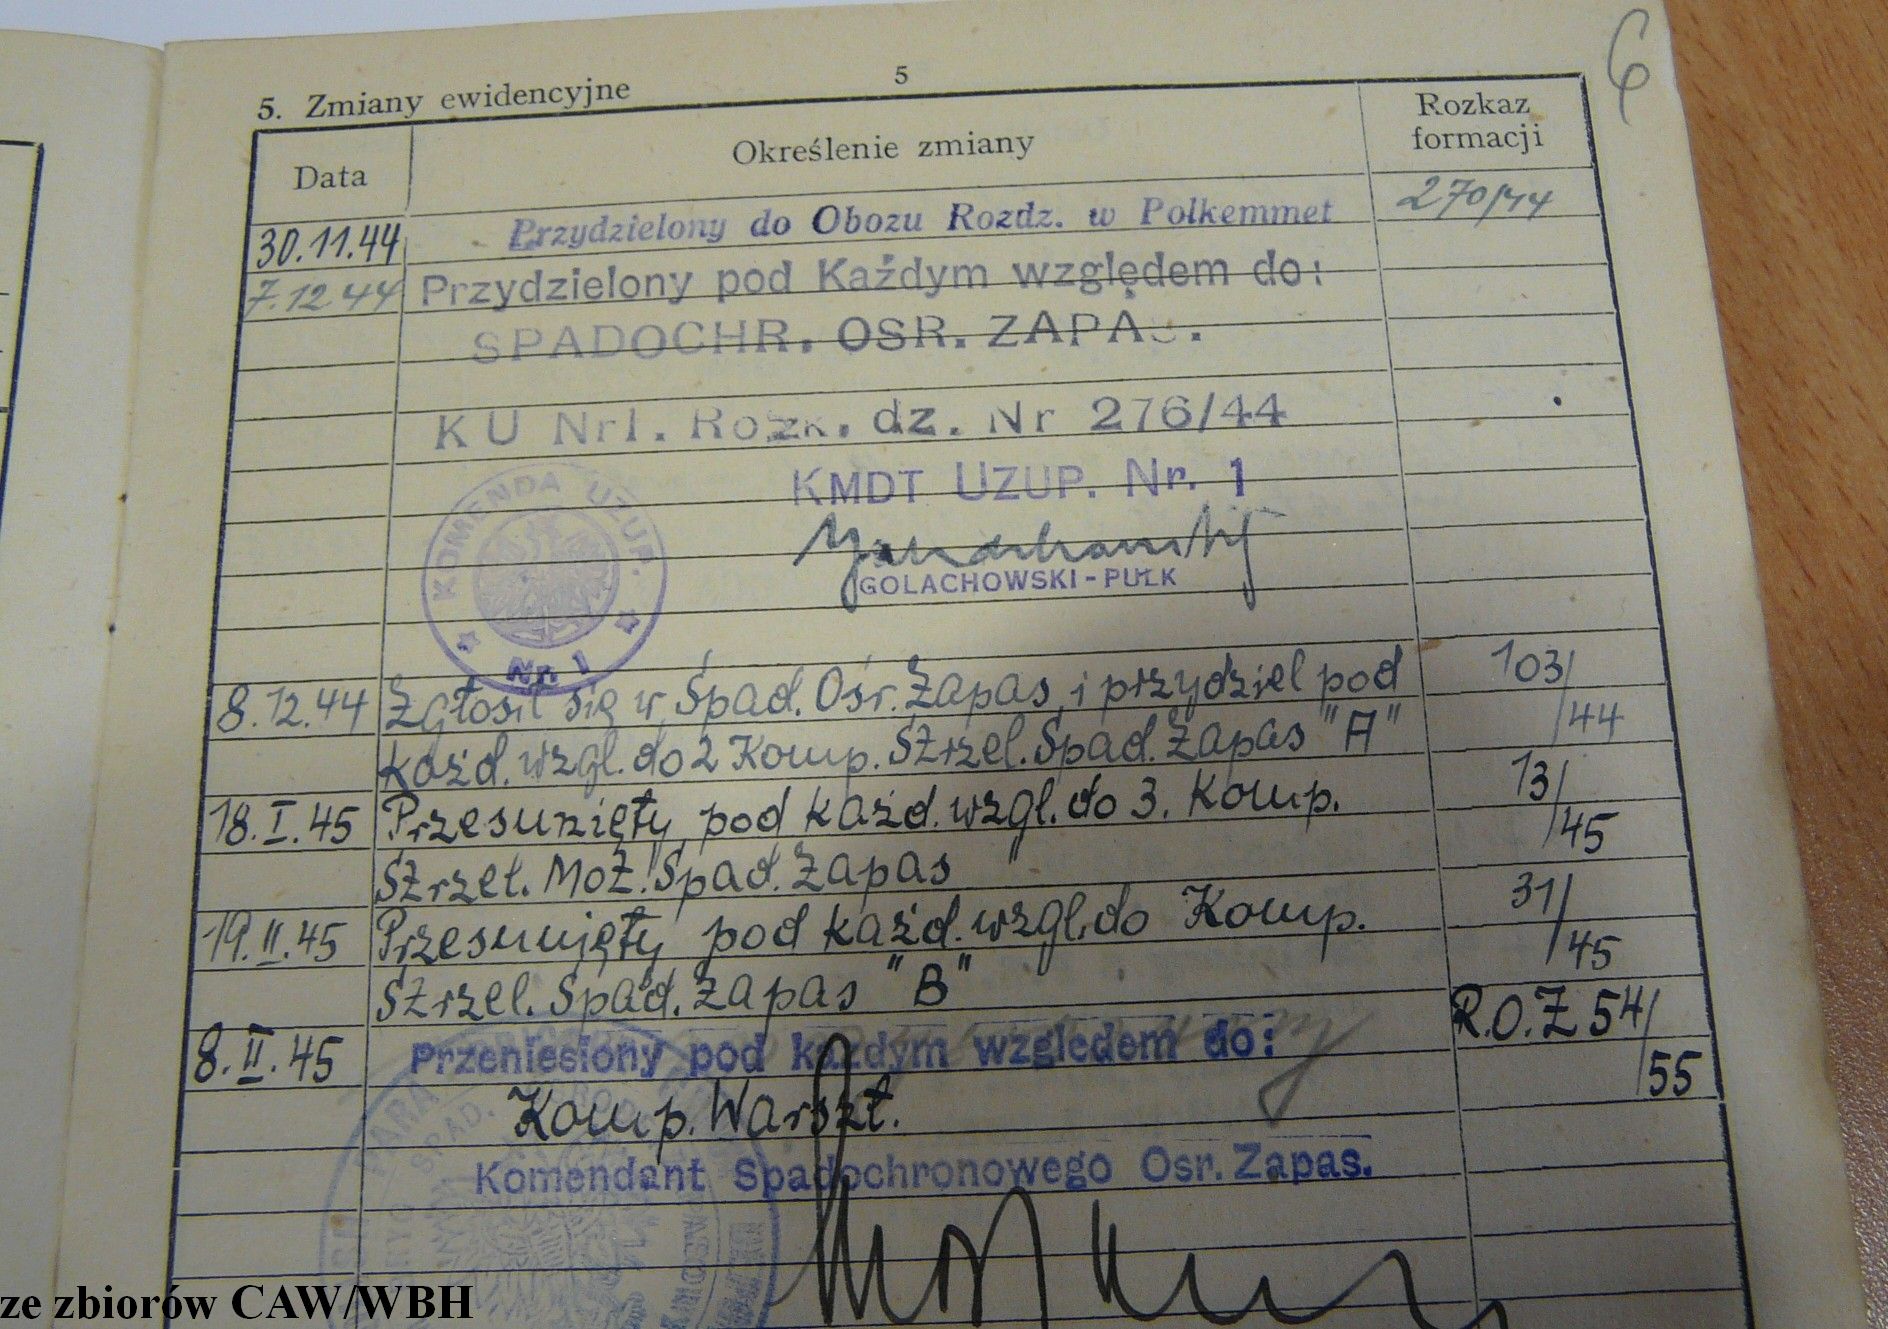 5
6
5. Zmiany ewidencyjne
Data
Określenie zmiany
Rozkaz
formacji
30.11.44 Przydzielony do Obozu Rozdz. w Polkemmet 270/44
7.12.44 Przydzielony pod Każdym względem do:
SPADOCHR. OSR. ZAPAS.
KU Nr1. Rozk. dz. Nr 276/44
KMDT UZUP. Nr. 1
GOLACHOWSKI - PUŁK
KOMENDA UZUP. Nr. 1
8.12.44 Zgłosił się w Spad. Ośr. Zapas. i przydziel pod 103/
każd. wzgl. do 2 Komp. Strzel. Spad. Zapas "A" /44
18.I.45 Przesunięty pod każd. wzgl. do 3. Komp. 13/
Strzel. Moż. Spad. Zapas /45
19.II.45 Przesunięty pod każd. wzgl. do Komp. 31/
Strzel. Spad. Zapas "B" /45
8.II.45 Przeniesiony pod każdym względem do: R.O.Z 54/
Komp. Warszt. /55
Komendant Spadochronowego Osr. Zapas.
ze zbiorów CAW/WBH